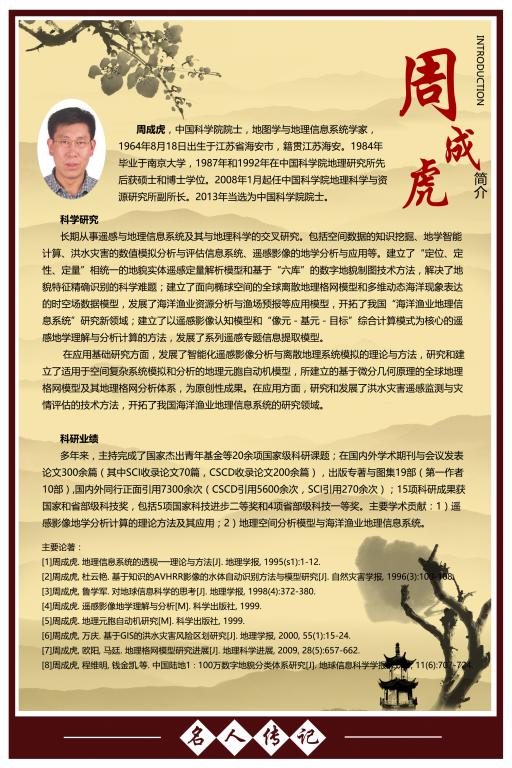 INTRODUCTION
周成虎
简介
周成虎，中国科学院院士，地图学与地理信息系统学家，
1964年8月18日出生于江苏省海安市，籍贯江苏海安。1984年
毕业于南京大学，1987年和1992年在中国科学院地理研究所先
后获硕士和博士学位。2008年1月起任中国科学院地理科学与资
源研究所副所长。2013年当选为中国科学院院士。
科学研究
长期从事遥感与地理信息系统及其与地理科学的交叉研究。包括空间数据的知识挖掘、地学智能
计算、洪水灾害的数值模拟分析与评估信息系统、遥感影像的地学分析与应用等。建立了“定位、定
性、定量”相统一的地貌实体遥感定量解析模型和基于“六库”的数字地貌制图技术方法，解决了地
貌特征精确识别的科学难题；建立了面向椭球空间的全球离散地理格网模型和多维动态海洋现象表达
的时空场数据模型，发展了海洋渔业资源分析与渔场预报等应用模型，开拓了我国“海洋渔业地理信
息系统”研究新领域；建立了以遥感影像认知模型和“像元－基元－目标”综合计算模式为核心的遥
感地学理解与分析计算的方法，发展了系列遥感专题信息提取模型。
在应用基础研究方面，发展了智能化遥感影像分析与离散地理系统模拟的理论与方法，研究和建
立了适用于空间复杂系统模拟和分析的地理元胞自动机模型，所建立的基于微分几何原理的全球地理
格网模型及其地理格网分析体系，为原创性成果。在应用方面，研究和发展了洪水灾害遥感监测与灾
情评估的技术方法，开拓了我国海洋渔业地理信息系统的研究领域。
科研业绩
多年来，主持完成了国家杰出青年基金等20余项国家级科研课题；在国内外学术期刊与会议发表
论文300余篇（其中SCI收录论文70篇，CSCD收录论文200余篇），出版专著与图集19部（第一作者
10部）,国内外同行正面引用7300余次（CSCD引用5600余次，SCI引用270余次）；15项科研成果获
国家和省部级科技奖，包括5项国家科技进步二等奖和4项省部级科技一等奖。主要学术贡献：1）遥
感影像地学分析计算的理论方法及其应用；2）地理空间分析模型与海洋渔业地理信息系统。
主要论著：
[1]周成虎. 地理信息系统的透视──理论与方法[J]. 地理学报, 1995(s1):1-12.
[2]周成虎, 杜云艳. 基于知识的AVHRR影像的水体自动识别方法与模型研究[J]. 自然灾害学报, 1996(3):100-108.
[3]周成虎, 鲁学军. 对地球信息科学的思考[J]. 地理学报, 1998(4):372-380.
[4]周成虎. 遥感影像地学理解与分析[M]. 科学出版社, 1999.
[5]周成虎. 地理元胞自动机研究[M]. 科学出版社, 1999.
[6]周成虎, 万庆. 基于GIS的洪水灾害风险区划研究[J]. 地理学报, 2000, 55(1):15-24.
[7]周成虎, 欧阳, 马廷. 地理格网模型研究进展[J]. 地理科学进展, 2009, 28(5):657-662.
[8]周成虎, 程维明, 钱金凯,等. 中国陆地1：100万数字地貌分类体系研究[J]. 地球信息科学学报, 11(6):707-724.
名人传记